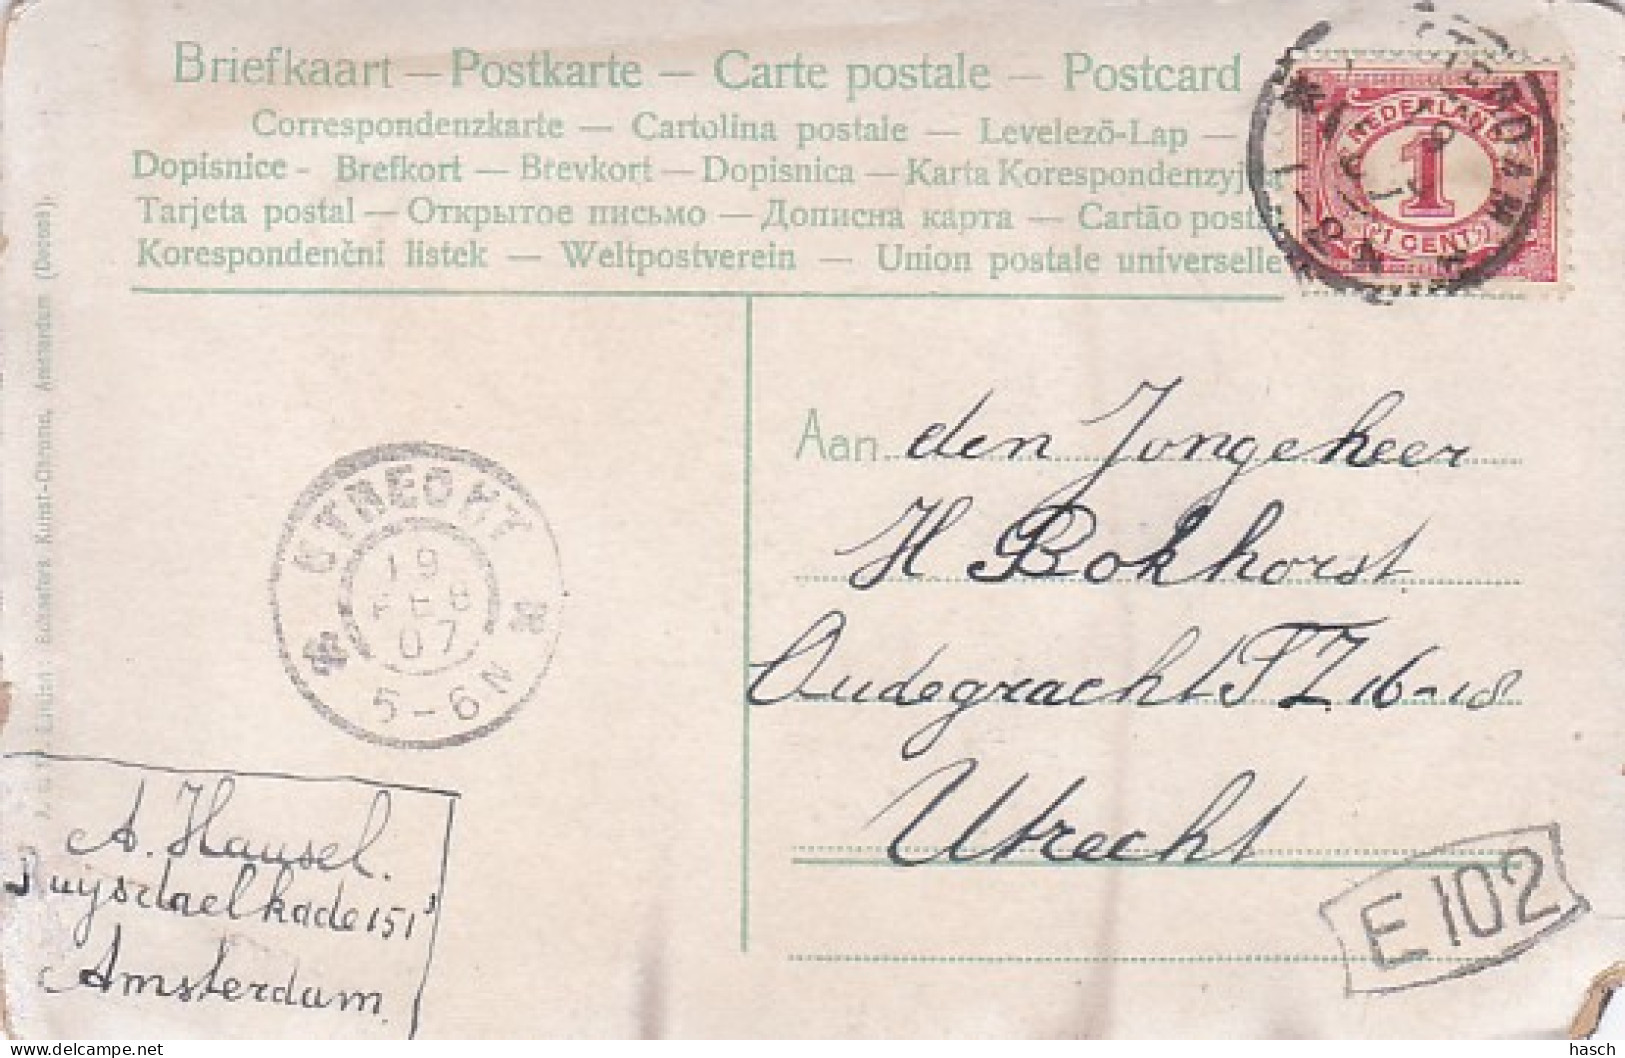 Briefkaart — Postkarte — Carte postale — Postcard
Correspondenzkarte — Cartolina postale — Levelezö-Lap —
Dopisnice - Brefkort — Brevkort — Dopisnica — Karta Korespondenzyjna
Tarjeta postal — Открытое письмо — Дописна карта — Cartão postal
Korespondenční listek — Weltpostverein — Union postale universelle
NEDERLAND
1
1 CENT
UTRECHT
19
FEB
07
5-6N
Aan den Jongeheer
H Bokhorst
Oudegracht TZ 16-18
Utrecht
E102
A. Hausel.
Ruysdaelkade 151'
Amsterdam
Kunst-Chromo, Amsterdam (Doceo8).
delcampe.net
hasch